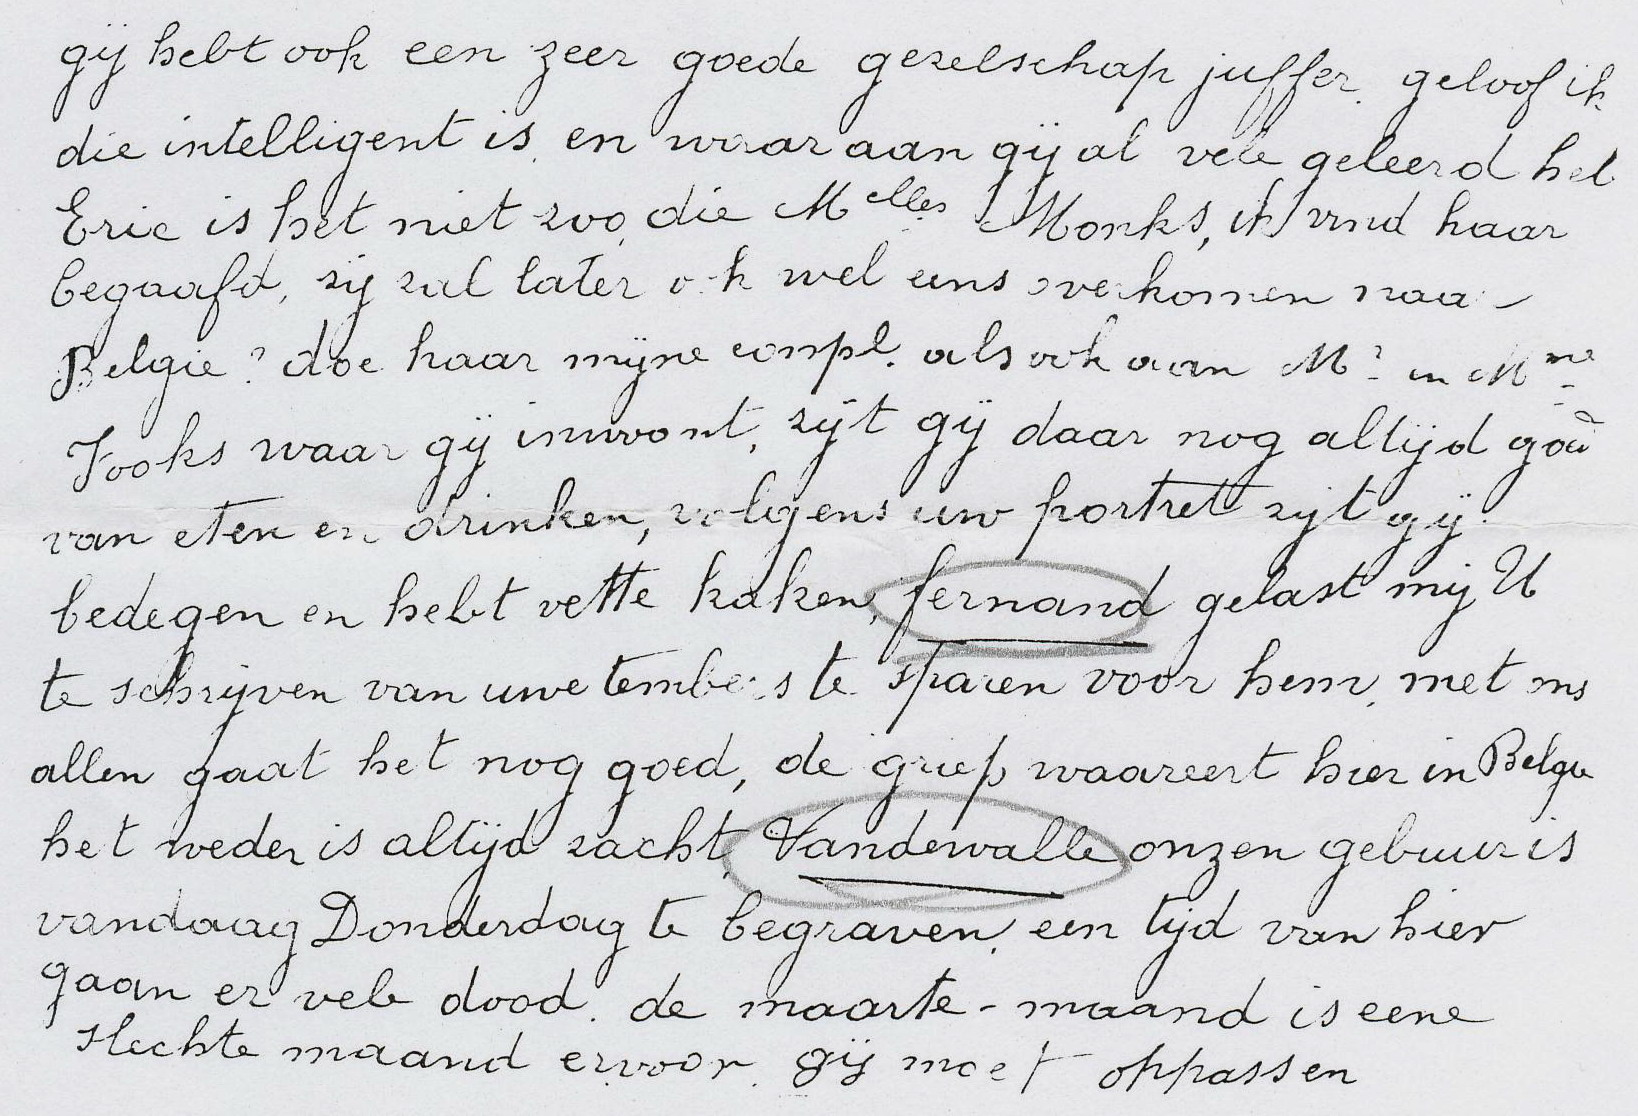 gij hebt ook een zeer goede gezelschap juffer, geloof ik
die intelligent is, en waar aan gij al vele geleerd heb
Eric is het niet zoo, die Melles Monks, ik vind haar
begaafd, zij zal later ook wel eens overkomen naar
Belgie? doe haar mijne compl. als ook aan Mr en Mme
Jooks waar gij inwoont, zijt gij daar nog altijd goed
van eten en drinken, volgens uw portret zijt gij
bedegen en hebt vette kaken, fernand gelast mij U
te schrijven van uwe tembers te sparen voor hem, met ons
allen gaat het nog goed, de griep waareert hier in Belgie
het weder is altijd zacht, Vandewalle onzen gebuur is
vandaag Donderdag te begraven, een tijd van hier
gaan er vele dood. de maarte-maand is eene
slechte maand ervoor, gij moet oppassen